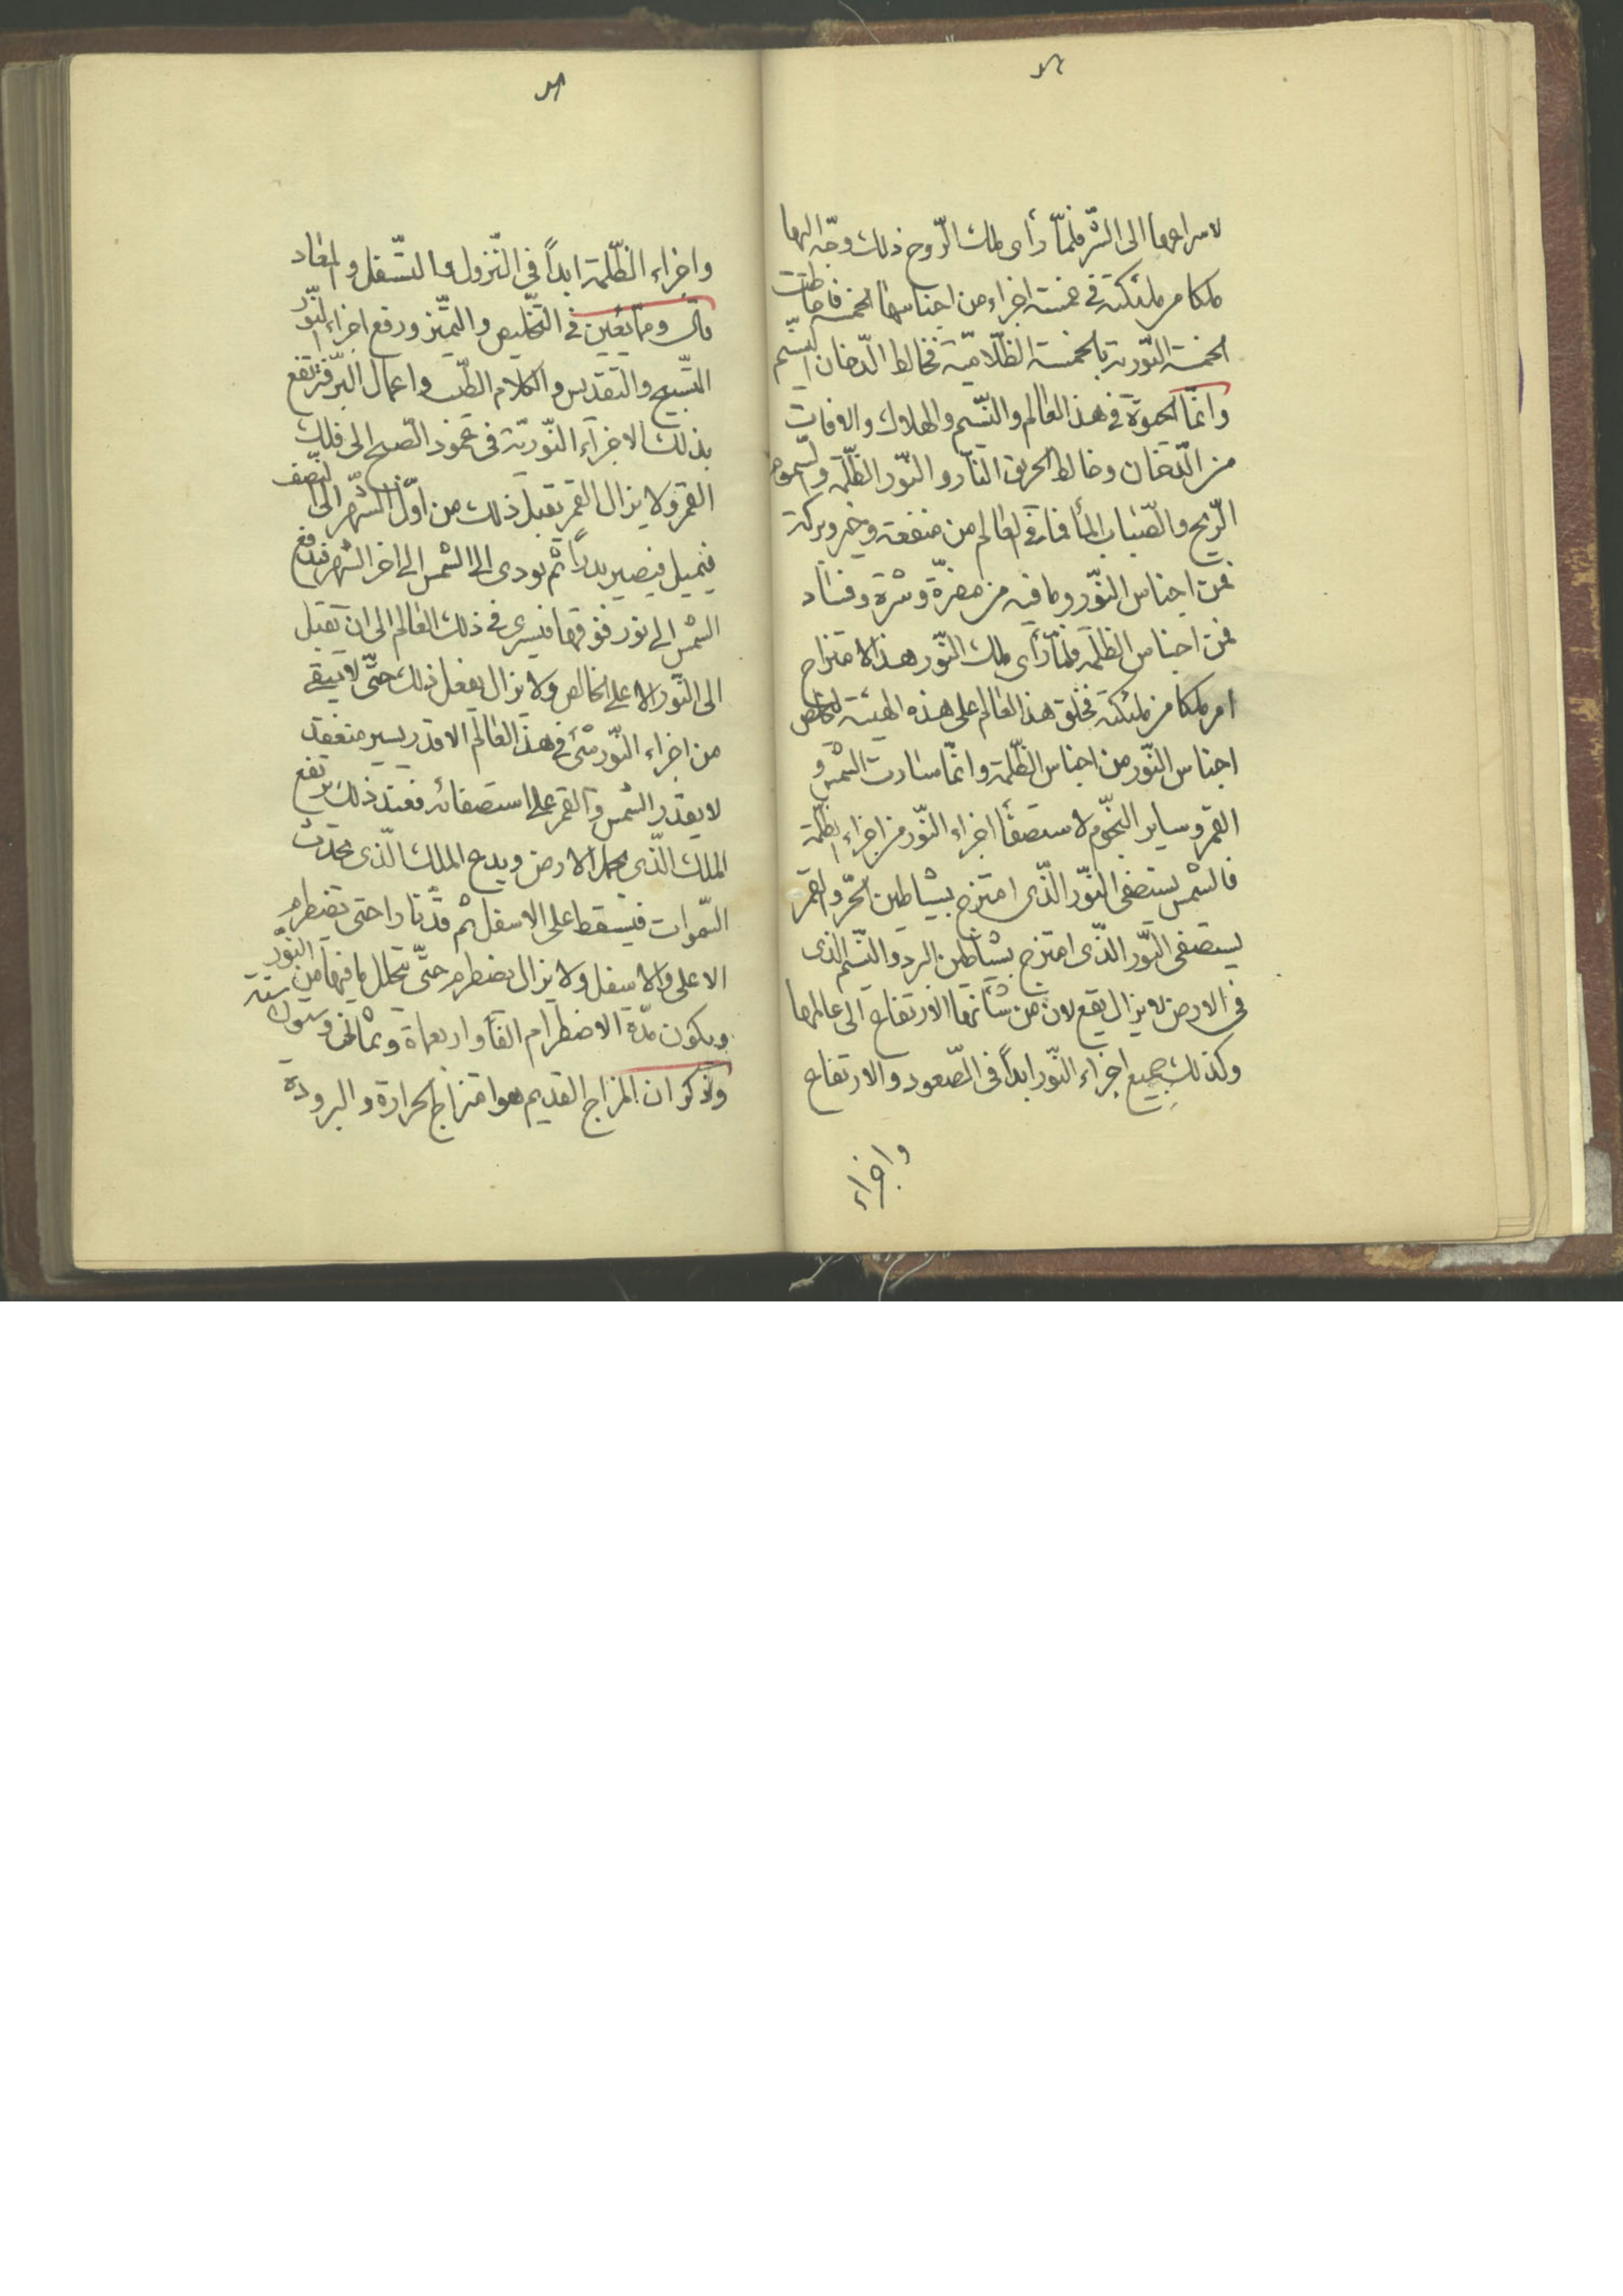 لاسراعها الى الشر فلمّا رأى ملك الرّوح ذلك وجّه اليها
ملكا من ملئكته فى خمسة اجزاء من اجناسها الخمسة فاختلطت
الخمسة النّورية بالخمسة الظّلاميّة فخالط الدّخان النّسيم
وانّما الحيوة فى هذا العالم والنّسيم والهلاك والافات
من الدّخان وخالط الحريق النّار والنّور الظّلمة والسّموم
الرّيح والضّباب الماء فما فى العالم من منفعة وخير وبركة
فمن اجناس النّور وما فيه من مضرّة وشرّة وفساد
فمن اجناس الظلمة فلمّا رأى ملك النّور هذا الامتزاج
امر ملكا من ملئكته فخلق هذا العالم على هذه الهيئة لتخلص
اجناس النّور من اجناس الظّلمة وانّما سارت الشمس و
القمر وساير النجّوم لاستصفأ اجزاء النّور من اجزاء الظلمة
فالشمس يستصفى النّور الّذى امتزج بشياطين الحرّ والقمر
يستصفى النّور الذّى امتزج بشياطين البرد والنّسيم الذى
فى الارض لا يزال يقع لان من شأنها الارتفاع الى عالمها
وكذلك جميع اجزاء النّور ابداً فى الصّعود والارتفاع
واجزاء
واجزاء الظّلمة ابداً فى النّزول والتسّفل والمعاد
قال وممّا يعين فى التّخليص والتميّز ورفع اجزاء النّور
التّسبيح والتقديس والكلام الطّيب واعمال البرّ فترتفع
بذلك الاجزاء النّوريّة فى عمود الصّبح الى فلك
القمر ولا يزال القمر يقبل ذلك من اوّل الشّهر الى النّصف
فيميل فيصير بدراً ثم يودى الى الشمس الى اخر الشهر فيدفع
الشمس الى نور فوقها فيسرى فى ذلك العالم الى ان تقبل
الى النّور الاعلى الخالص ولا يزال يفعل ذلك حتّى لا يبقى
من اجزاء النّور شئ فى هذا العالم الا قدر يسير منعقد
لا يقدر الشمس والقمر على استصفائه فعند ذلك يرتفع
الملك الذّى يحمل الارض ويدع الملك الّذى يجذب
السّموات فيسقط على الاسفل ثم قد نارا حتى يضطرم
الاعلى والاسفل ولا يزال يضطرم حتّى يتحلل ما فيها من النّور
ويكون مدّة الاضطرام الفأ واربعماة وثمانى وستون سنة
وذكر ان المزاج القديم هو امتزاج الحرارة والبرودة